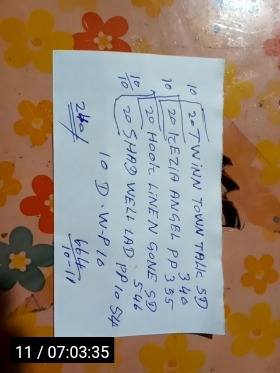 10 20 TWINN TOWN TALK SD
340
10 20 KEZIA ANGEL PP 335
10 20 HOOK LINEN GONE SD
546
10 20 SHAD WELL LAD PP 10 54
10 D.W.P 10
240/
664
10-11
11 / 07:03:35